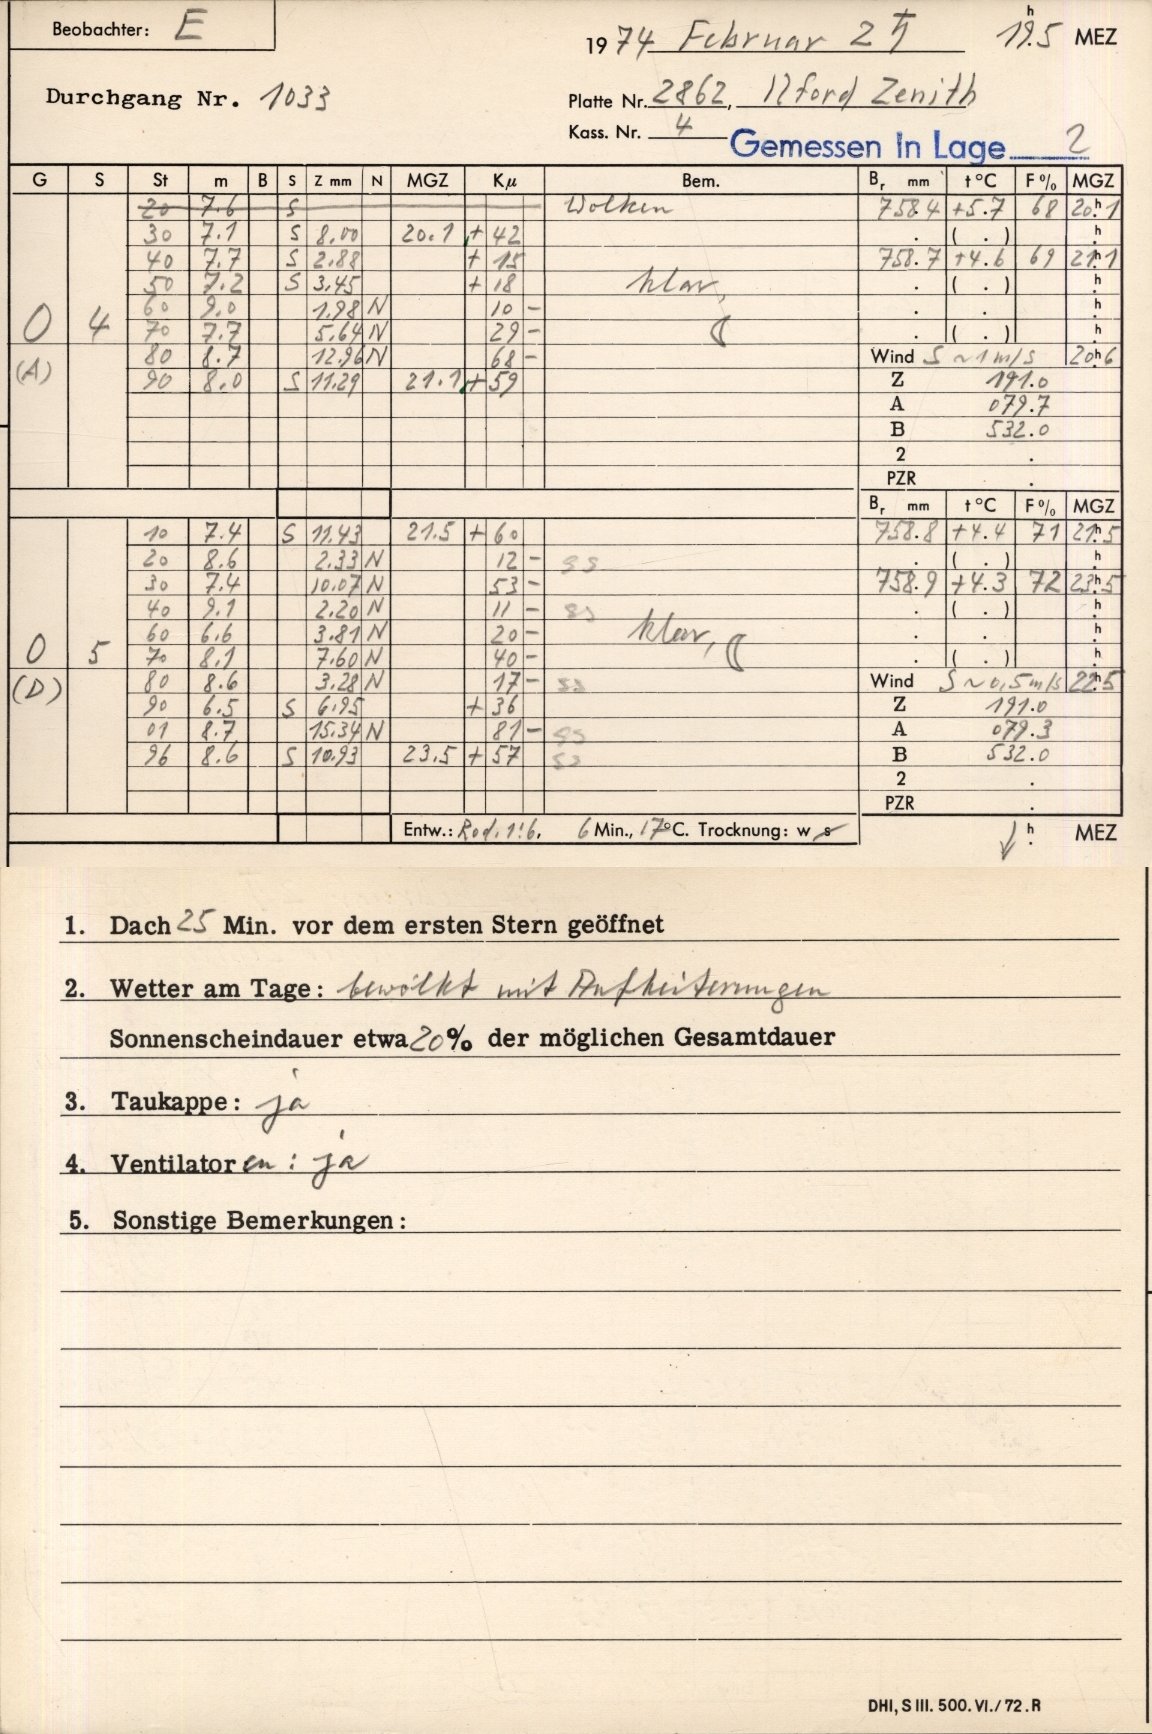 Beobachter: E
1974 Februar 2 ♄ 19.5 h MEZ
Durchgang Nr. 1033
Platte Nr. 2862, Ilford Zenith
Kass. Nr. 4
Gemessen In Lage 2
G S St m B S Z mm N MGZ Kμ Bem. Br mm t °C F % MGZ
20 7.6 S Wolken 758.4 +5.7 68 20h.1
30 7.1 S 8.00 20.1 + 42 . ( . ) h
40 7.7 S 2.88 + 15 758.7 +4.6 69 21h1
50 7.2 S 3.45 + 18 klar, . ( . ) h
60 9.0 1.98 N 10 - . . h
O 4 70 7.7 5.64 N 29 - . ( . ) h
(A) 80 8.7 12.96 N 68 - Wind S ~1 m/s 20h6
90 8.0 S 11.29 21.1 + 59 Z 191.0
A 079.7
B 532.0
2 .
PZR .
Br mm t °C F % MGZ
10 7.4 S 11.43 21.5 + 60 758.8 +4.4 71 21h5
20 8.6 2.33 N 12 - ss . ( . ) h
30 7.4 10.07 N 53 - 758.9 +4.3 72 23h5
40 9.1 2.20 N 11 - ss . ( . ) h
60 6.6 3.81 N 20 - klar, . . h
O 5 70 8.1 7.60 N 40 - . ( . ) h
(D) 80 8.6 3.28 N 17 - ss Wind S ~0,5 m/s 22h5
90 6.5 S 6.95 + 36 Z 191.0
01 8.7 15.34 N 81 - ss A 079.3
96 8.6 S 10.93 23.5 + 57 ss B 532.0
2 .
PZR .
Entw.: Rod. 1:6. 6 Min., 17°C. Trocknung: w s h. MEZ
1. Dach 25 Min. vor dem ersten Stern geöffnet
2. Wetter am Tage: bewölkt mit Aufheiterungen
Sonnenscheindauer etwa 20% der möglichen Gesamtdauer
3. Taukappe: ja
4. Ventilatoren: ja
5. Sonstige Bemerkungen:
DHI, S III. 500. VI./72. R